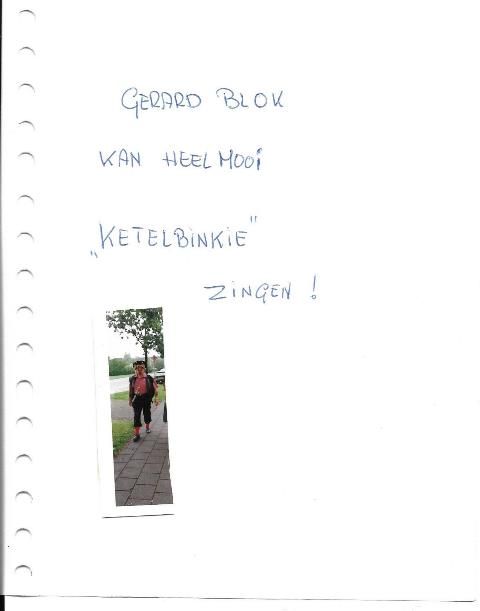 GERARD BLOK
KAN HEEL MOOi
„KETELBiNKiE"
ZiNGEN !